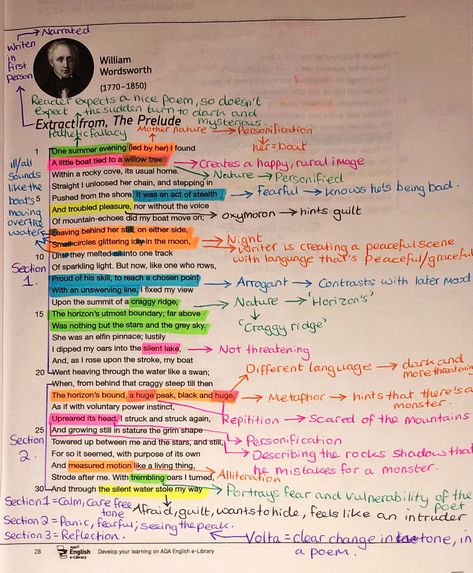 Narrated
Writen
in
first
person
William
Wordsworth
(1770–1850)
Reader expects a nice poem, so doesn't
expect the sudden turn to dark and
mysterious.
Extract from, The Prelude
Pathetic fallacy
Mother nature → Personification
1 One summer evening (led by her) I found
her = boat
A little boat tied to a willow tree
Creates a happy, rural image
Within a rocky cove, its usual home.
Nature → Personified
Straight I unloosed her chain, and stepping in
5 Pushed from the shore. It was an act of stealth
Fearful → Knows he's being bad.
ill/all
sounds
like the
boat's
moving
over the
water
And troubled pleasure, nor without the voice
oxymoron → hints guilt
Of mountain-echoes did my boat move on;
Leaving behind her still, on either side,
Night
Small circles glittering idly in the moon,
Writer is creating a peaceful scene
with language that's peaceful/graceful
10 Until they melted all into one track
Section
1.
Of sparkling light. But now, like one who rows,
Proud of his skill, to reach a chosen point
Arrogant → Contrasts with later mood
With an unswerving line, I fixed my view
Upon the summit of a craggy ridge,
Nature → 'Horizon's'
'Craggy ridge'
15 The horizon's utmost boundary; far above
Was nothing but the stars and the grey sky.
She was an elfin pinnace; lustily
I dipped my oars into the silent lake,
Not threatening
And, as I rose upon the stroke, my boat
20 Went heaving through the water like a swan;
Different language → dark and
more threatening
When, from behind that craggy steep till then
The horizon's bound, a huge peak, black and huge,
Metaphor → hints that there's a
monster.
As if with voluntary power instinct,
Repitition → Scared of the mountains
Upreared its head. I struck and struck again,
25 And growing still in stature the grim shape
Personification
Section
2.
Towered up between me and the stars, and still,
Describing the rocks shadow that
he mistakes for a monster.
For so it seemed, with purpose of its own
And measured motion like a living thing,
Alliteration
Strode after me. With trembling oars I turned,
30 And through the silent water stole my way
Portrays fear and vulnerability of the
poet
Section 1 = Calm, care free
tone
Afraid, guilt, wants to hide, feels like an intruder
Section 2 = Panic, fearful, seeing the peak.
Section 3 = Reflection.
Volta = clear change in tone, in
a poem.
28 AQA English e-Library Develop your learning on AQA English e-Library